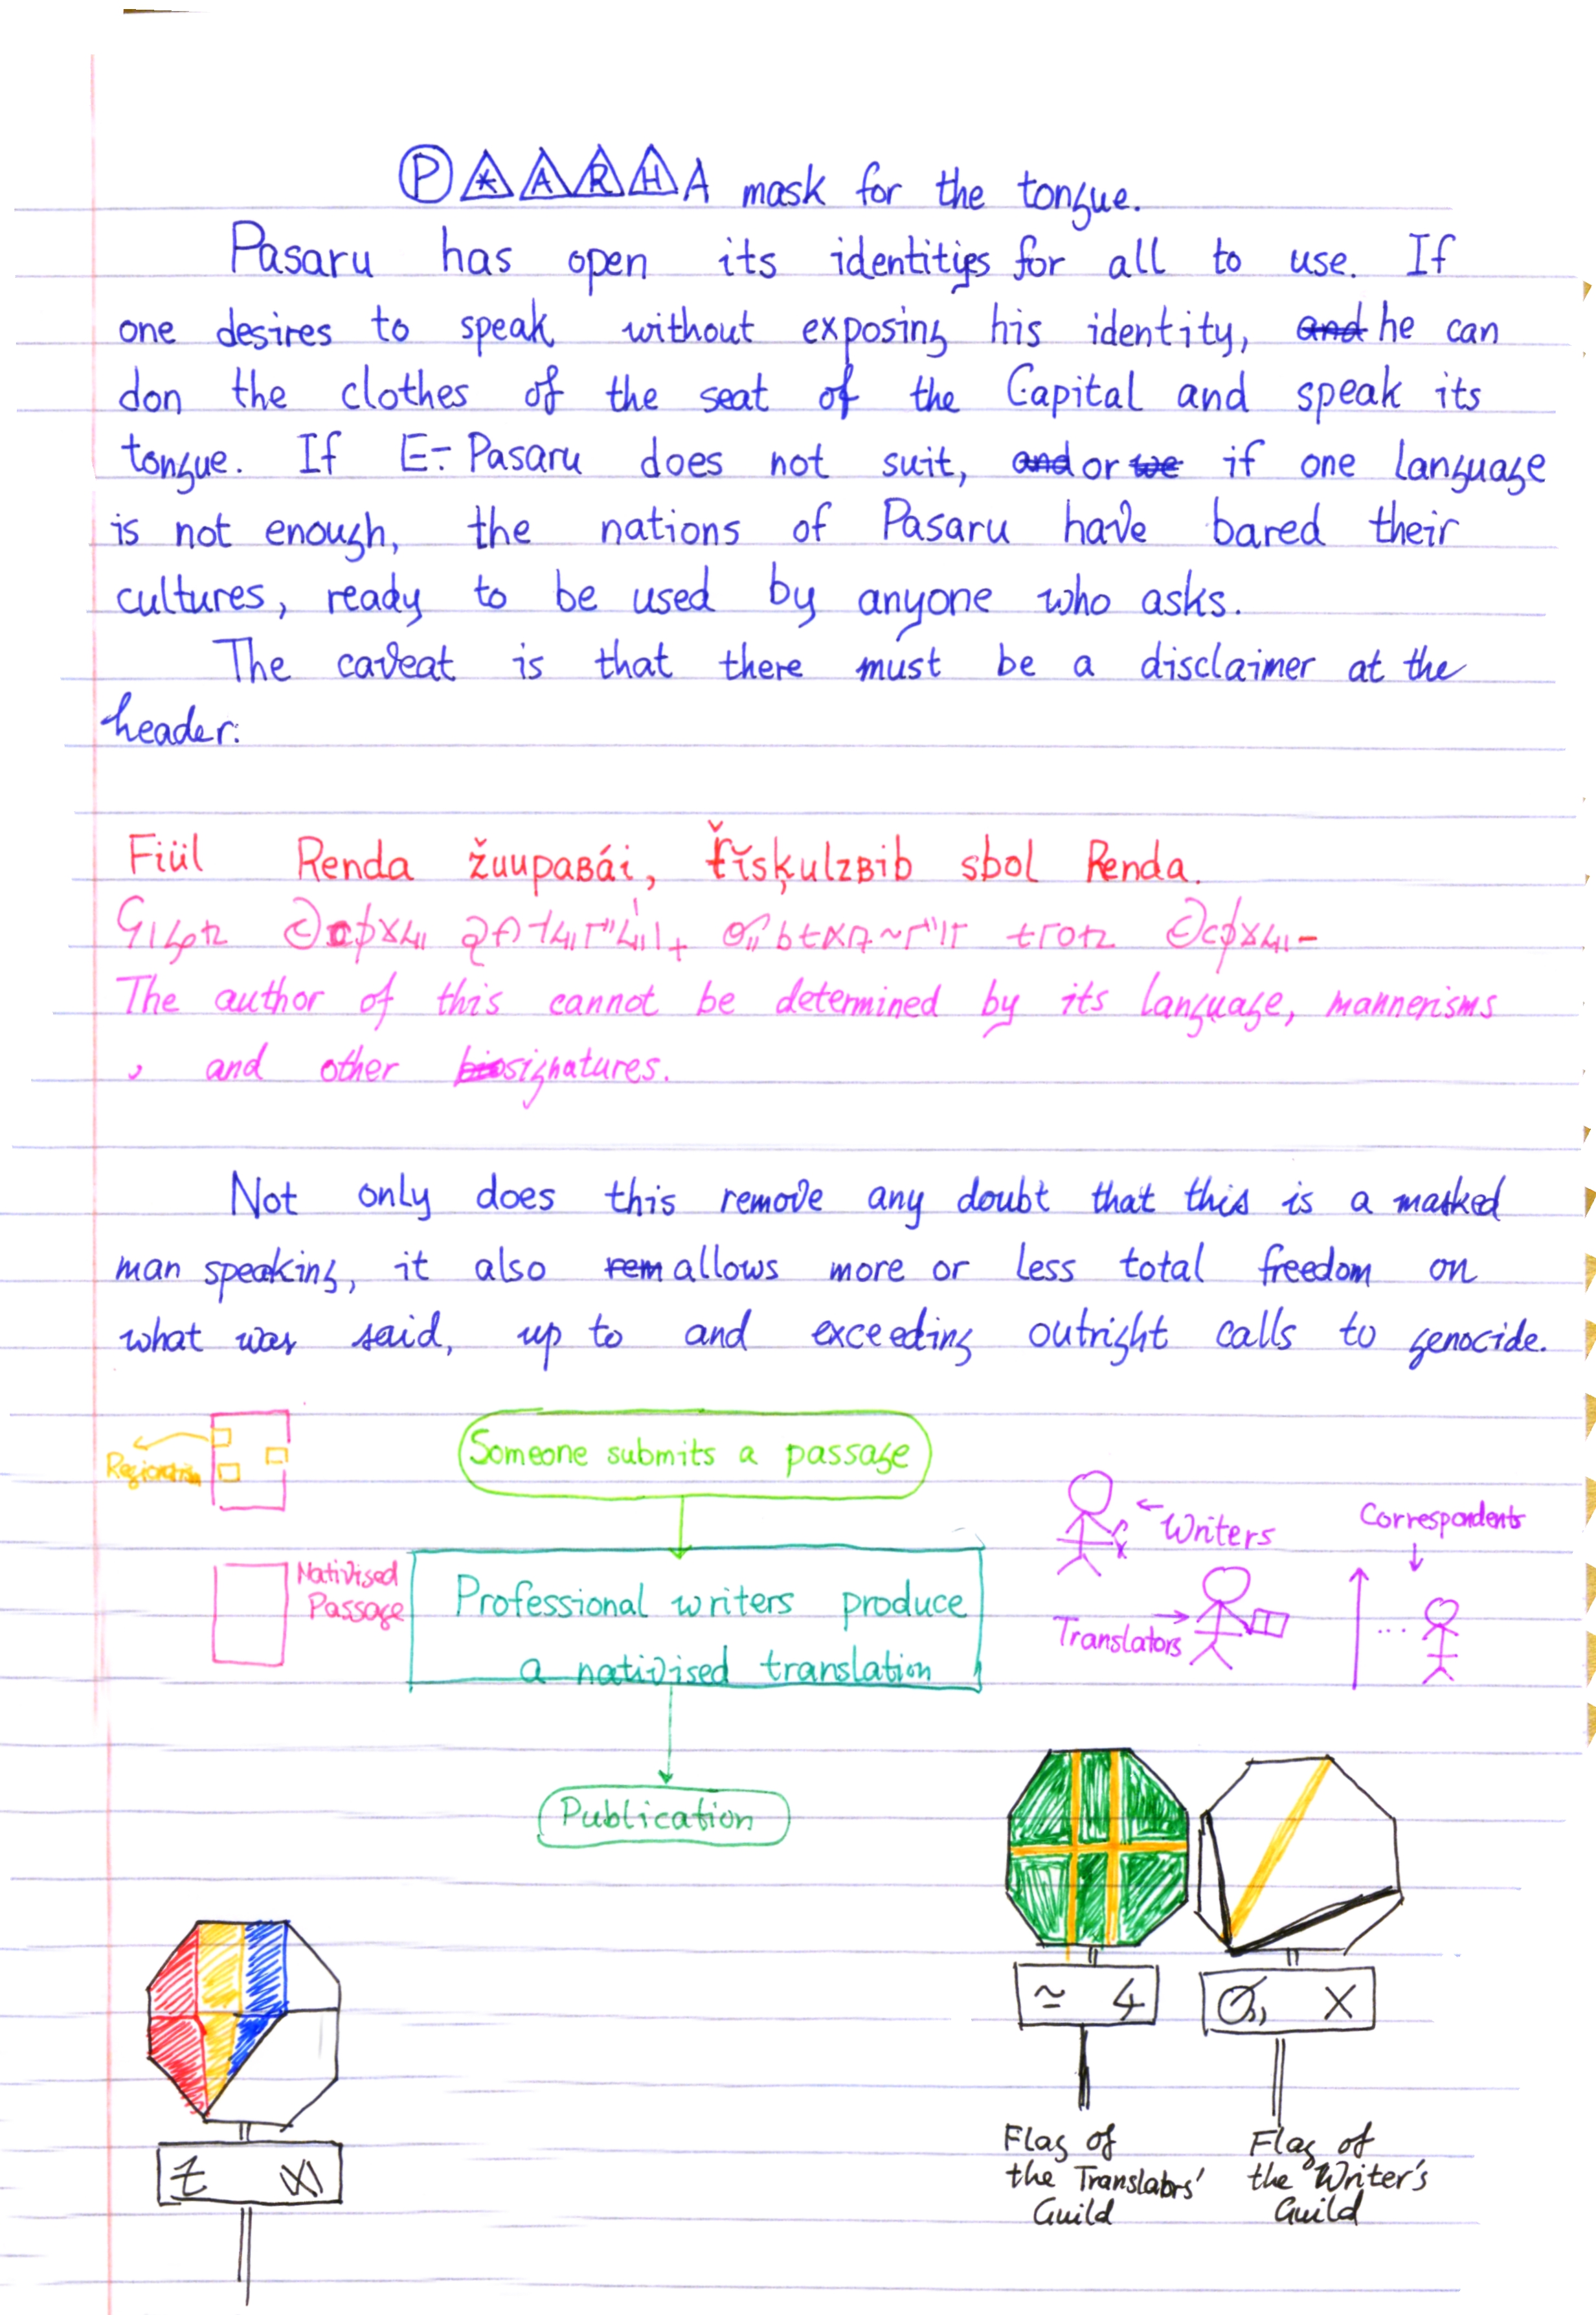 P * A R H A mask for the tongue.
Pasaru has open its identities for all to use. If
one desires to speak without exposing his identity, and he can
don the clothes of the seat of the Capital and speak its
tongue. If E-Pasaru does not suit, and or we if one language
is not enough, the nations of Pasaru have bared their
cultures, ready to be used by anyone who asks.
The caveat is that there must be a disclaimer at the
header:
Fiül Renda žuupaʙái, sbol Renda.
The author of this cannot be determined by its language, mannerisms
, and other biosignatures.
Not only does this remove any doubt that this is a masked
man speaking, it also rem allows more or less total freedom on
what was said, up to and exceeding outright calls to genocide.
Someone submits a passage
Writers
Correspondents
Nativised
Passage
Professional writers produce
a nativised translation
Translators
...
Publication
Flag of
the Translators'
Guild
Flag of
the Writer's
Guild